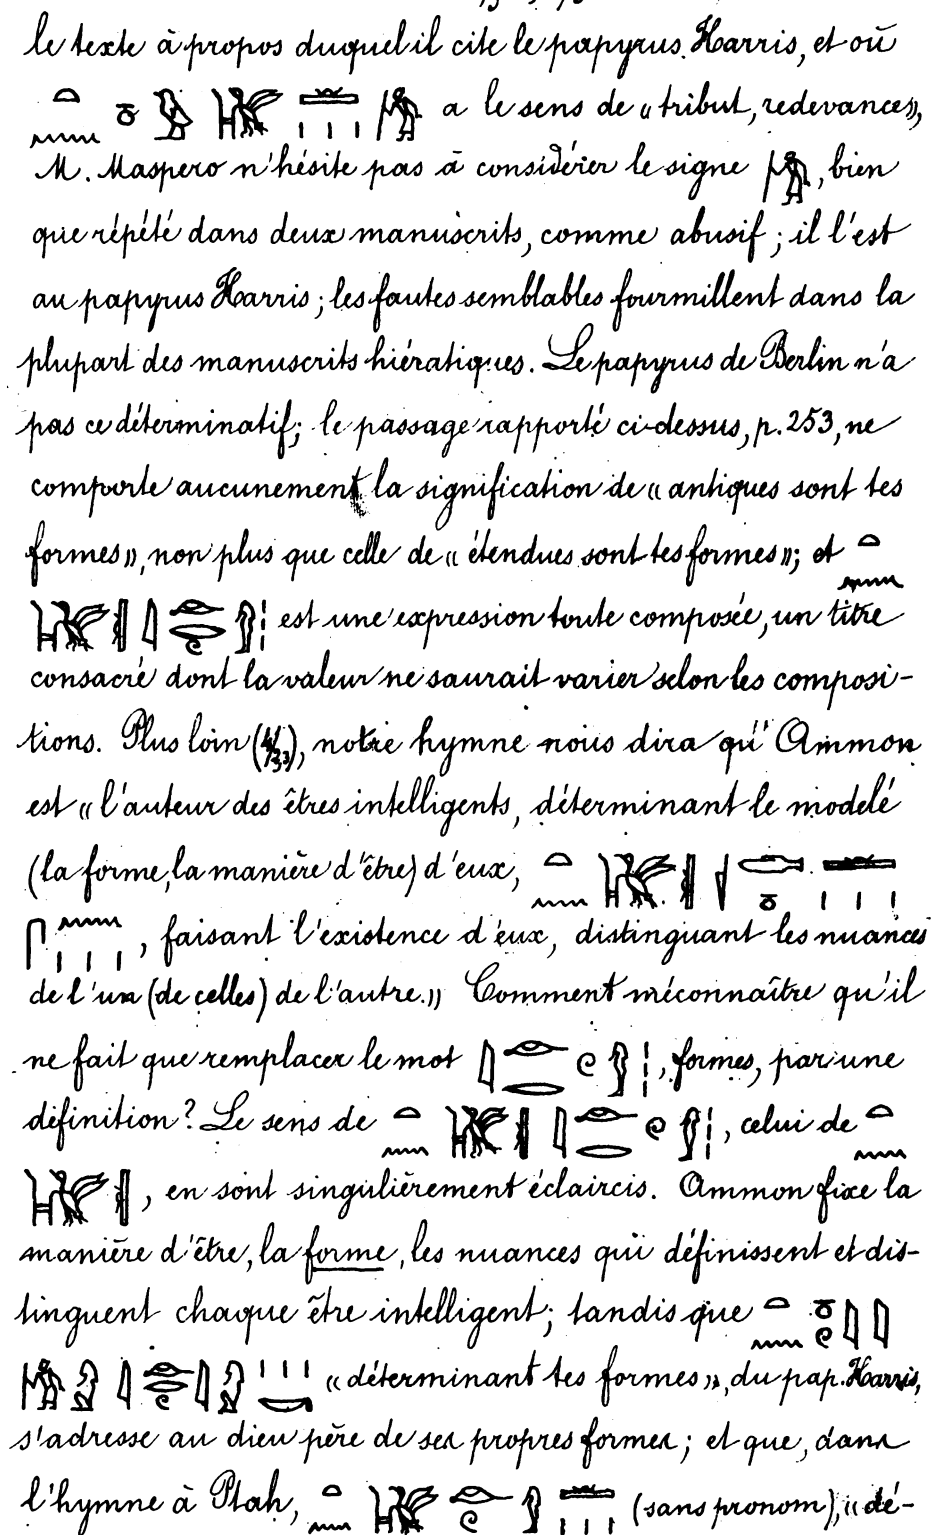 le texte à propos duquel il cite le papyrus Harris, et où
a le sens de «tribut, redevances»,
M. Maspero n'hésite pas à considérer le signe , bien
que répété dans deux manuscrits, comme abusif ; il l'est
au papyrus Harris ; les fautes semblables fourmillent dans la
plupart des manuscrits hiératiques. Le papyrus de Berlin n'a
pas ce déterminatif; le passage rapporté ci-dessus, p. 253, ne
comporte aucunement la signification de «antiques sont tes
formes», non plus que celle de «étendues sont tes formes»; et
est une expression toute composée, un titre
consacré dont la valeur ne saurait varier selon les composi-
tions. Plus loin ( ), notre hymne nous dira qu'Ammon
est «l'auteur des êtres intelligents, déterminant le modelé
(la forme, la manière d'être) d'eux,
, faisant l'existence d'eux, distinguant les nuances
de l'un (de celles) de l'autre.» Comment méconnaître qu'il
ne fait que remplacer le mot , formes, par une
définition? Le sens de , celui de
, en sont singulièrement éclaircis. Ammon fixe la
manière d'être, la forme, les nuances qui définissent et dis-
tinguent chaque être intelligent; tandis que
«déterminant tes formes», du pap. Harris,
s'adresse au dieu père de ses propres formes ; et que, dans
l'hymne à Ptah, (sans pronom), «dé-